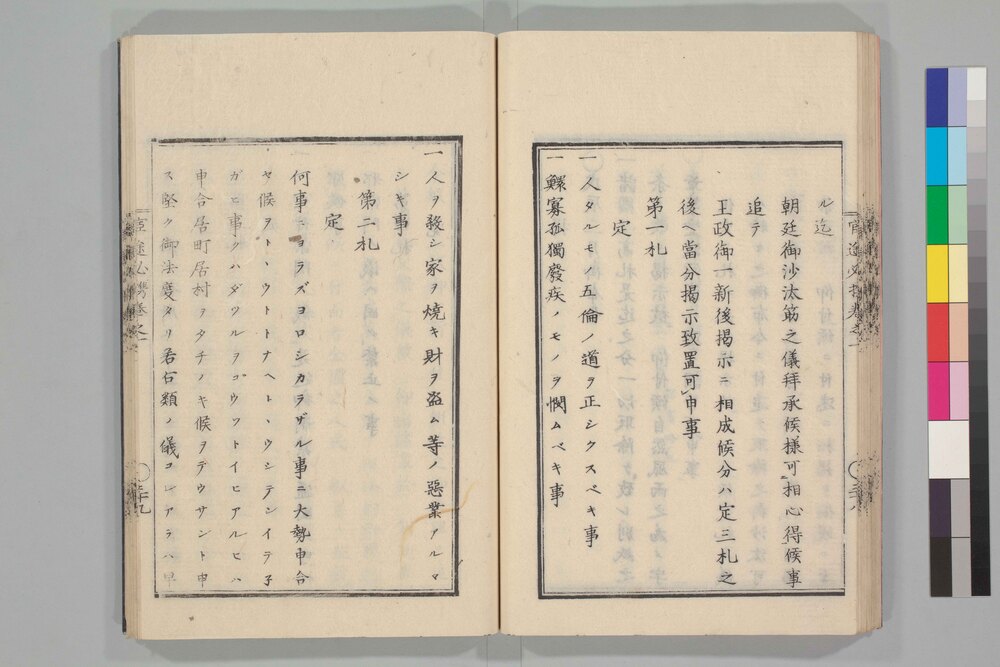 ル迄
朝廷御沙汰筋之儀拜承候様可相心得候事
追テ
王政御一新後掲示ニ相成候分ハ定三札之
後ヘ當分掲示致置可申事
第一札
定
一人タルモノ五倫ノ道ヲ正シクスベキ事
一鰥寡孤獨廢疾ノモノヲ憫ムベキ事
一人ヲ殺シ家ヲ燒キ財ヲ盗ム等ノ惡業アルマ
シキ事
第二札
定
何事ニヨラズヨロシカラザル事ニ大勢申合
セ候ヲトヽウトトナヘトヽウシテシイテ子
ガヒ事クハダツルヲゴウソトイヒアルヒハ
申合居町居村ヲタチノキ候ヲテウサント申
ス堅ク御法度タリ若右類ノ儀コレアラハ早